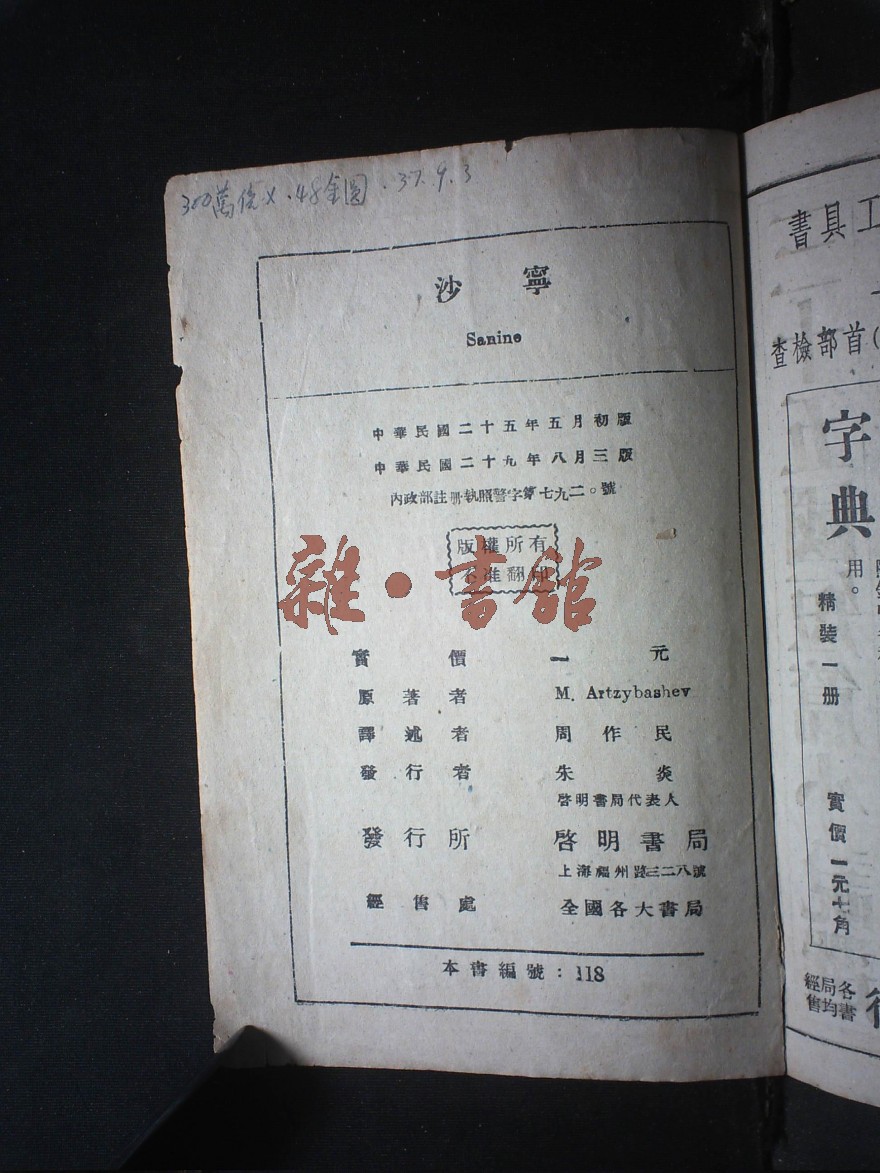 300萬 × .48金圓 . 37.9.3
沙寧
Sanine
中華民國二十五年五月初版
中華民國二十九年八月三版
內政部註册執照警字第七九二〇號
版權所有
不准翻印
雜·書館
實價 一元
原著者 M. Artzybashev
譯述者 周作民
發行者 朱炎
啓明書局代表人
發行所 啓明書局
上海福州路三二八號
經售處 全國各大書局
本書編號：118
書具工
查檢部首(
字典
用。
精裝一册
實價一元七角
經售
局均
各書